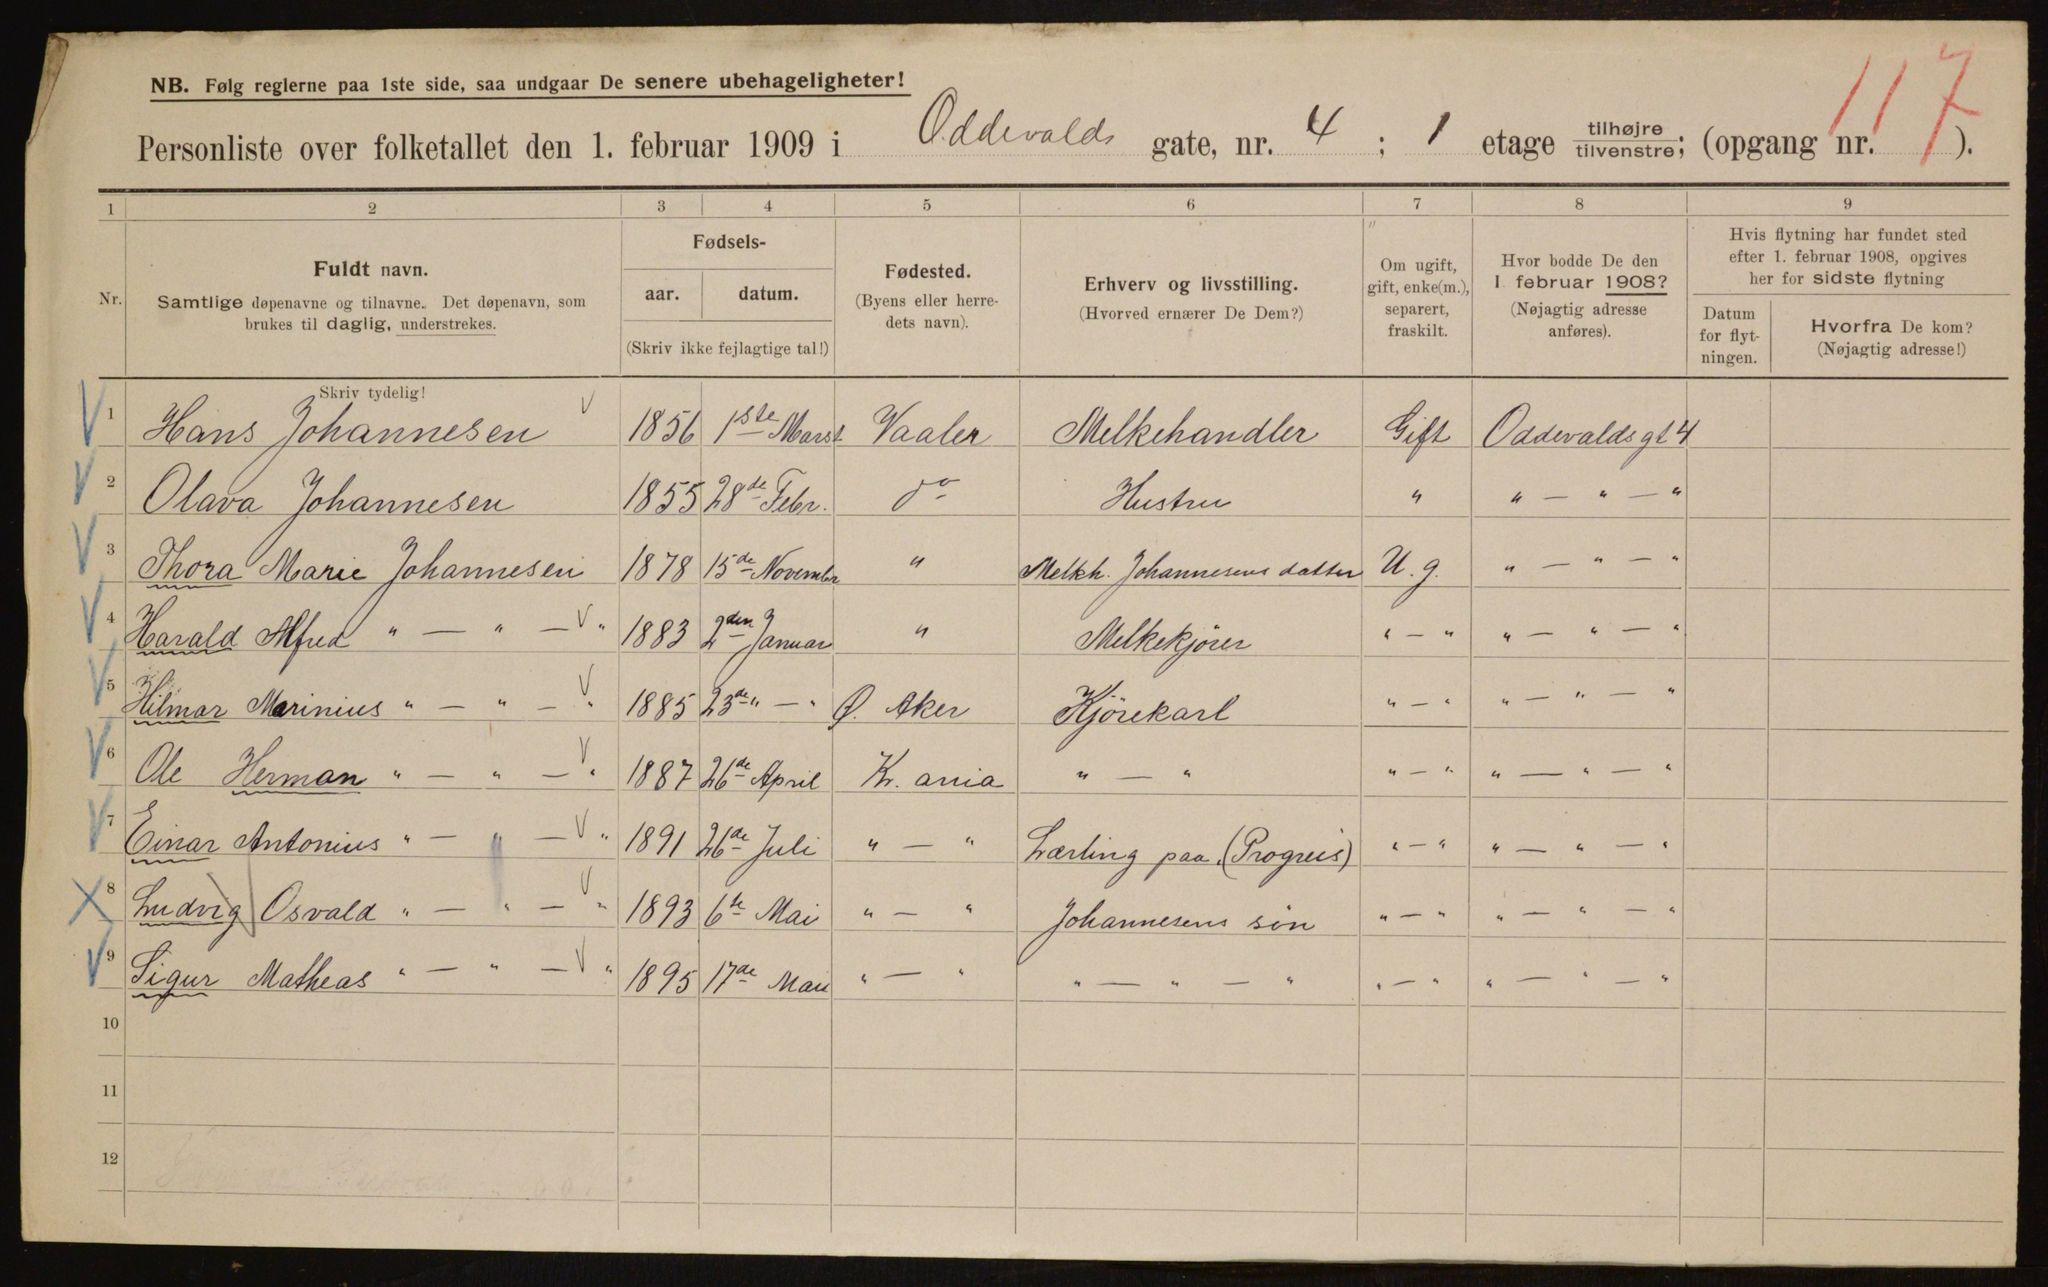 117
NB. Følg reglerne paa 1ste side, saa undgaar De senere ubehageligheter!
Personliste over folketallet den 1. februar 1909 i Oddevalds gate, nr. 4 ; 1 etage tilhøjre tilvenstre; (opgang nr. ).
1 2 3 4 5 6 7 8 9
Nr.
Fuldt navn.
Samtlige døpenavne og tilnavne. Det døpenavn, som
brukes til daglig, understrekes.
Skriv tydelig!
Fødsels-
aar. datum.
(Skriv ikke fejlagtige tal!)
Fødested.
(Byens eller herre-
dets navn).
Erhverv og livsstilling.
(Hvorved ernærer De Dem?)
Om ugift,
gift, enke(m.),
separert,
fraskilt.
Hvor bodde De den
1 februar 1908?
(Nøjagtig adresse
anføres).
Hvis flytning har fundet sted
efter 1. februar 1908, opgives
her for sidste flytning
Datum
for flyt-
ningen.
Hvorfra De kom?
(Nøjagtig adresse!)
1 Hans Johannesen 1856 1ste Marst Vaaler Melkehandler Gift Oddevaldsgt 4
2 Olava Johannesen 1855 28de Febr. do Hustru " " — " — "
3 Thora Marie Johannesen 1878 15de November " Melkh. Johannesens datter U. g. " — " — "
4 Harald Alfred " — " — " 1883 2den Januar " Melkekjører " — " " — " — "
5 Hilmar Marinius " — " — " 1885 23de " — " Ø. Aker Kjørekarl " — " " — " — "
6 Ole Herman " — " — " 1887 26de April Kr. ania " — " " — " " — " — "
7 Einar Antonius " — " — " 1891 26de Juli " — " Lærling paa (Progres) " — " " — " — "
8 Ludvig Osvald " — " — " 1893 6te Mai " — " Johannesens søn " — " " — " — "
9 Sigur Matheas " — " — " 1895 17de Mai " — " " — " — " " — " " — " — "
10
11
12